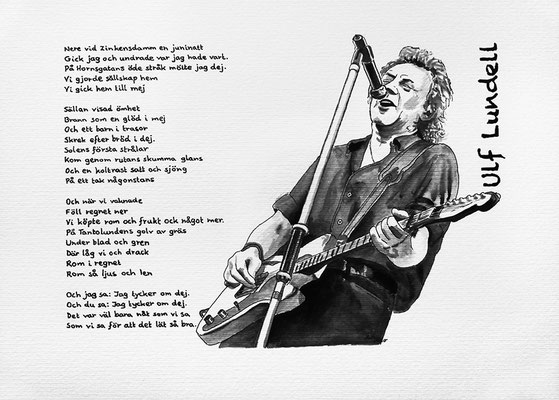 Nere vid Zinkensdamm en juninatt
Gick jag och undrade var jag hade vart.
På Hornsgatans öde stråk mötte jag dej.
Vi gjorde sällskap hem
Vi gick hem till mej
Sällan visad ömhet
Brann som en glöd i mej
Och ett barn i trasor
Skrek efter bröd i dej.
Solens första strålar
Kom genom rutans skumma glans
Och en koltrast satt och sjöng
På ett tak någonstans
Och när vi vaknade
Föll regnet ner
Vi köpte rom och frukt och något mer.
På Tantolundens golv av gräs
Under blad och gren
Där låg vi och drack
Rom i regnet
Rom så ljus och len
Och jag sa: Jag tycker om dej.
Och du sa: Jag tycker om dej.
Det var väl bara nåt som vi sa
Som vi sa för att det lät så bra.
Ulf Lundell